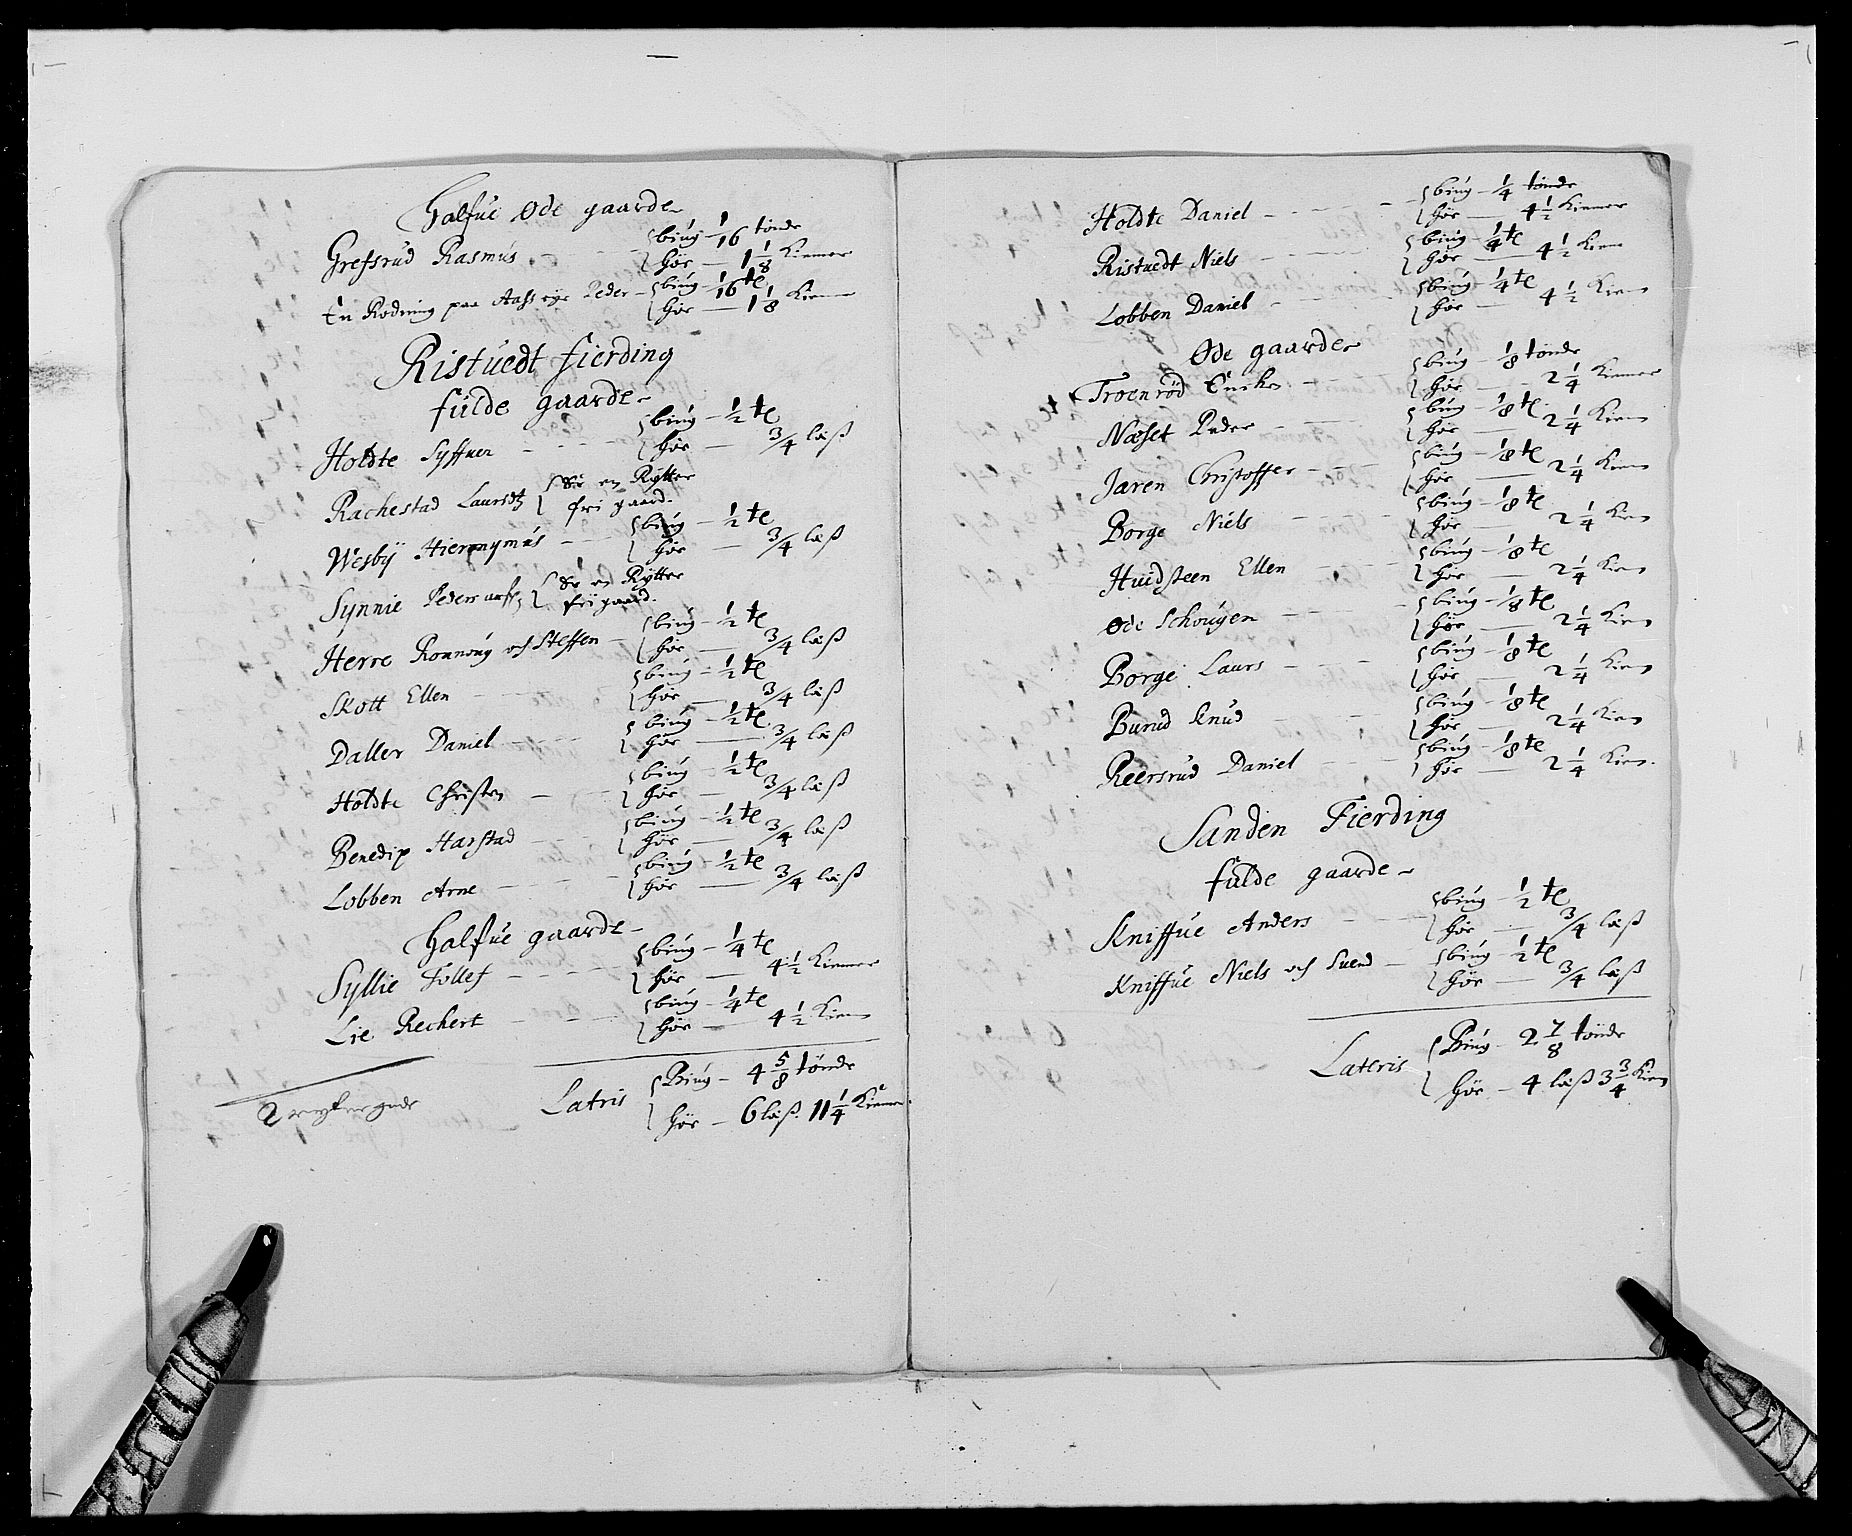 Halfue Øde gaarde
Grefsrud Rasmus - biug - 1/16 tønde
høe - 1 1/8 Kiemer
En Rødning paa Aass eye Peder - biug - 1/16 te
høe - 1 1/8 Kiem
Ristuedt fierding
fulde gaarde
Holdte Syffuer - biug - 1/2 te
høe - 3/4 läss
Rachestad Lauridtz en Rytter
fri gaard.
Wesby Hieronymus - biug - 1/2 te
høe - 3/4 läss
Synnie Peders en Rytter
fri gaard.
Herre Ronnoug och Steffen - biug - 1/2 te
høe - 3/4 läss
Skott Ellen - biug - 1/2 te
høe - 3/4 läss
Daller Daniel - biug - 1/2 te
høe - 3/4 läss
Holdte Christen - biug - 1/2 te
høe - 3/4 läss
Benedip Harstad - biug - 1/2 te
høe - 3/4 läss
Lobben Arne - biug - 1/2 te
høe - 3/4 läss
Halfue gaarde
Syllie Tollef - biug - 1/4 te
høe - 4 1/2 Kiemer
Lie Rechert - biug - 1/4 te
høe - 4 1/2 Kiem
Latris Biug - 4 5/8 tønde
høe - 6 läss 11 1/4 Kiemer
2
Holdte Daniel - biug - 1/4 tønde
høe - 4 1/2 Kiemer
Ristuedt Niels - biug - 1/4 te
høe - 4 1/2 Kiem
Lobben Daniel - biug - 1/4 te
høe - 4 1/2 Kiem
Øde gaarde
Troenrød Encke - biug - 1/8 tønde
høe - 2 1/4 Kiemer
Næset Peder - biug - 1/8 te
høe - 2 1/4 Kiem
Jaren Christoffer - biug - 1/8 te
høe - 2 1/4 Kiem
Borge Niels - biug - 1/8 te
høe - 2 1/4 Kiem
Huidsteen Ellen - biug - 1/8 te
høe - 2 1/4 Kiem
Øde Schougen - biug - 1/8 te
høe - 2 1/4 Kiem
Borge Laurs - biug - 1/8 te
høe - 2 1/4 Kiem
Burud Knud - biug - 1/8 te
høe - 2 1/4 Kiem
Reersrud Daniel - biug - 1/8 te
høe - 2 1/4 Kiem.
Sanden Fierding
fulde gaarde
Kniffue Anders - biug - 1/2 te
høe - 3/4 läss
Kniffue Niels och Suend - biug - 1/2 te
høe - 3/4 läss
Lateris Biug - 2 7/8 tønde
høe - 4 läss 3 3/4 Kiem